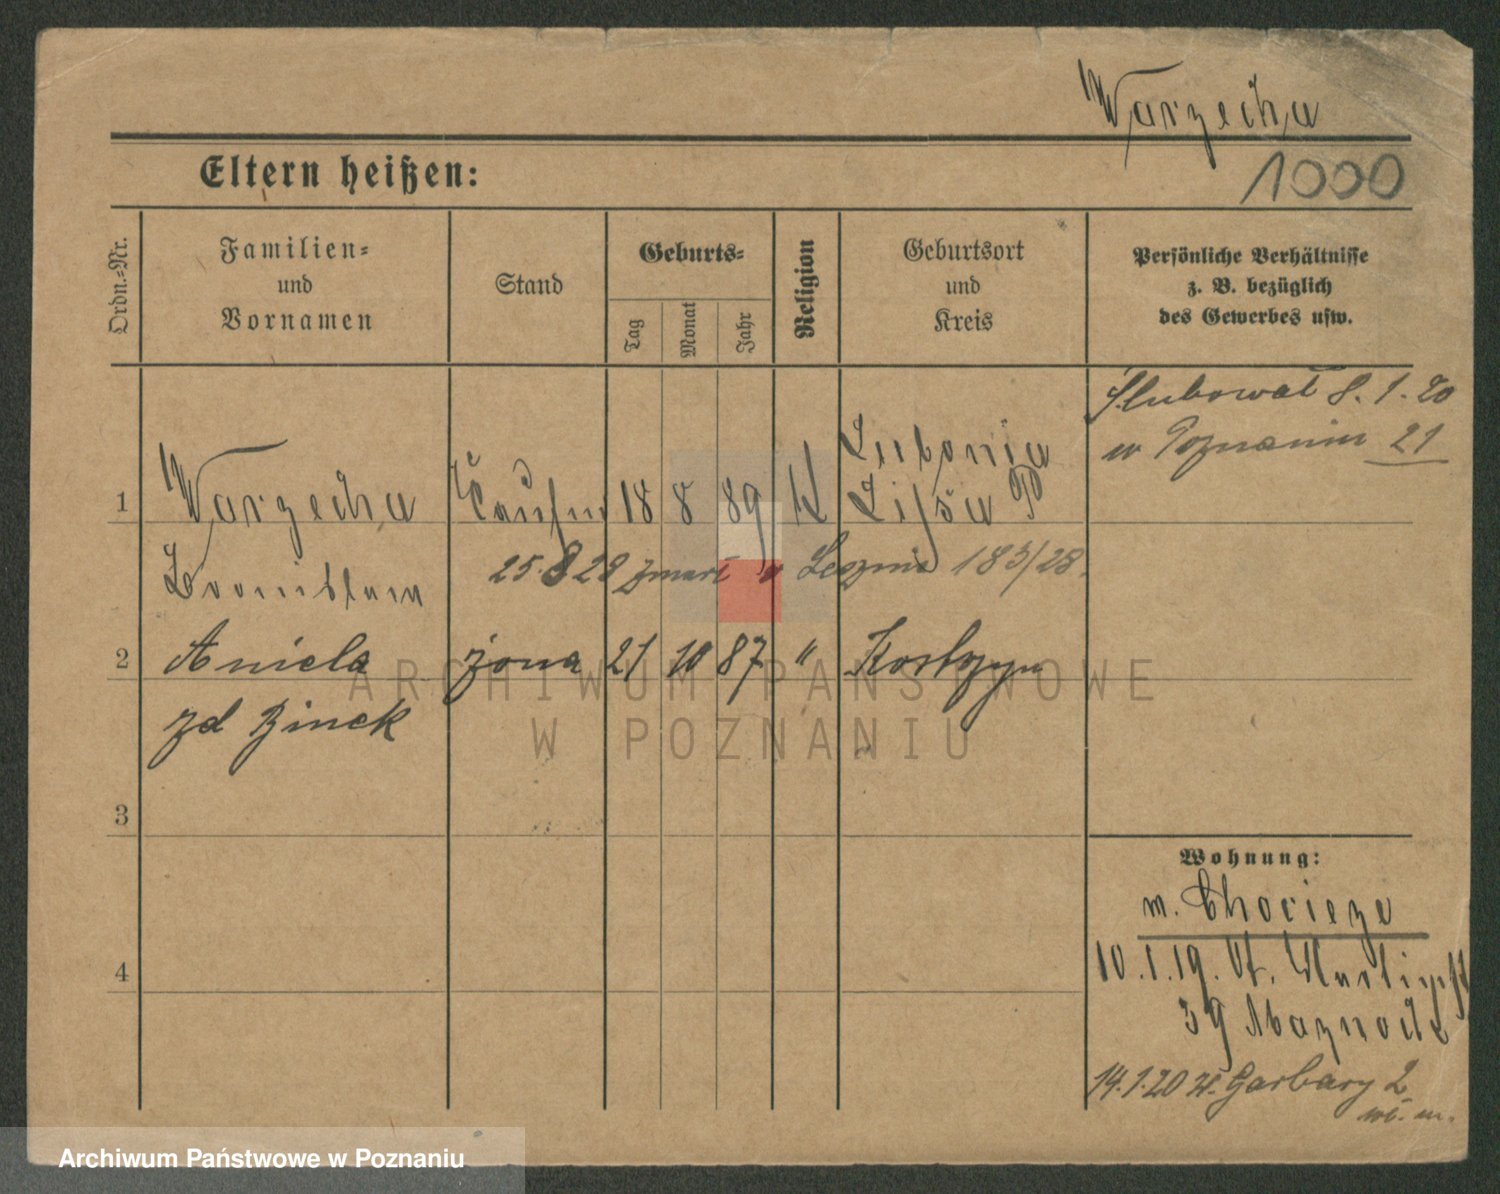 Warzecha
Eltern heißen:
1000
Ordn.-Nr.
Familien-
und
Vornamen
Stand
Geburts-
Tag
Monat
Jahr
Religion
Geburtsort
und
Kreis
Persönliche Verhältnisse
z. B. bezüglich
des Gewerbes usw.
Ślubował 8. 1. 20
w Poznaniu 21
1 Warzecha 18 8 89 K Lubonia
Lissa P
25. 8 28 zmarł w Lesznie 183/28.
2 Aniela żona 21 10 87 " Kostrzyn
zd Binek
3
4
Wohnung:
m.
10. 1. 19. St. Martinstr
39
14. 1. 20 W. Garbary 2
ARCHIWUM PAŃSTWOWE
W POZNANIU
Archiwum Państwowe w Poznaniu